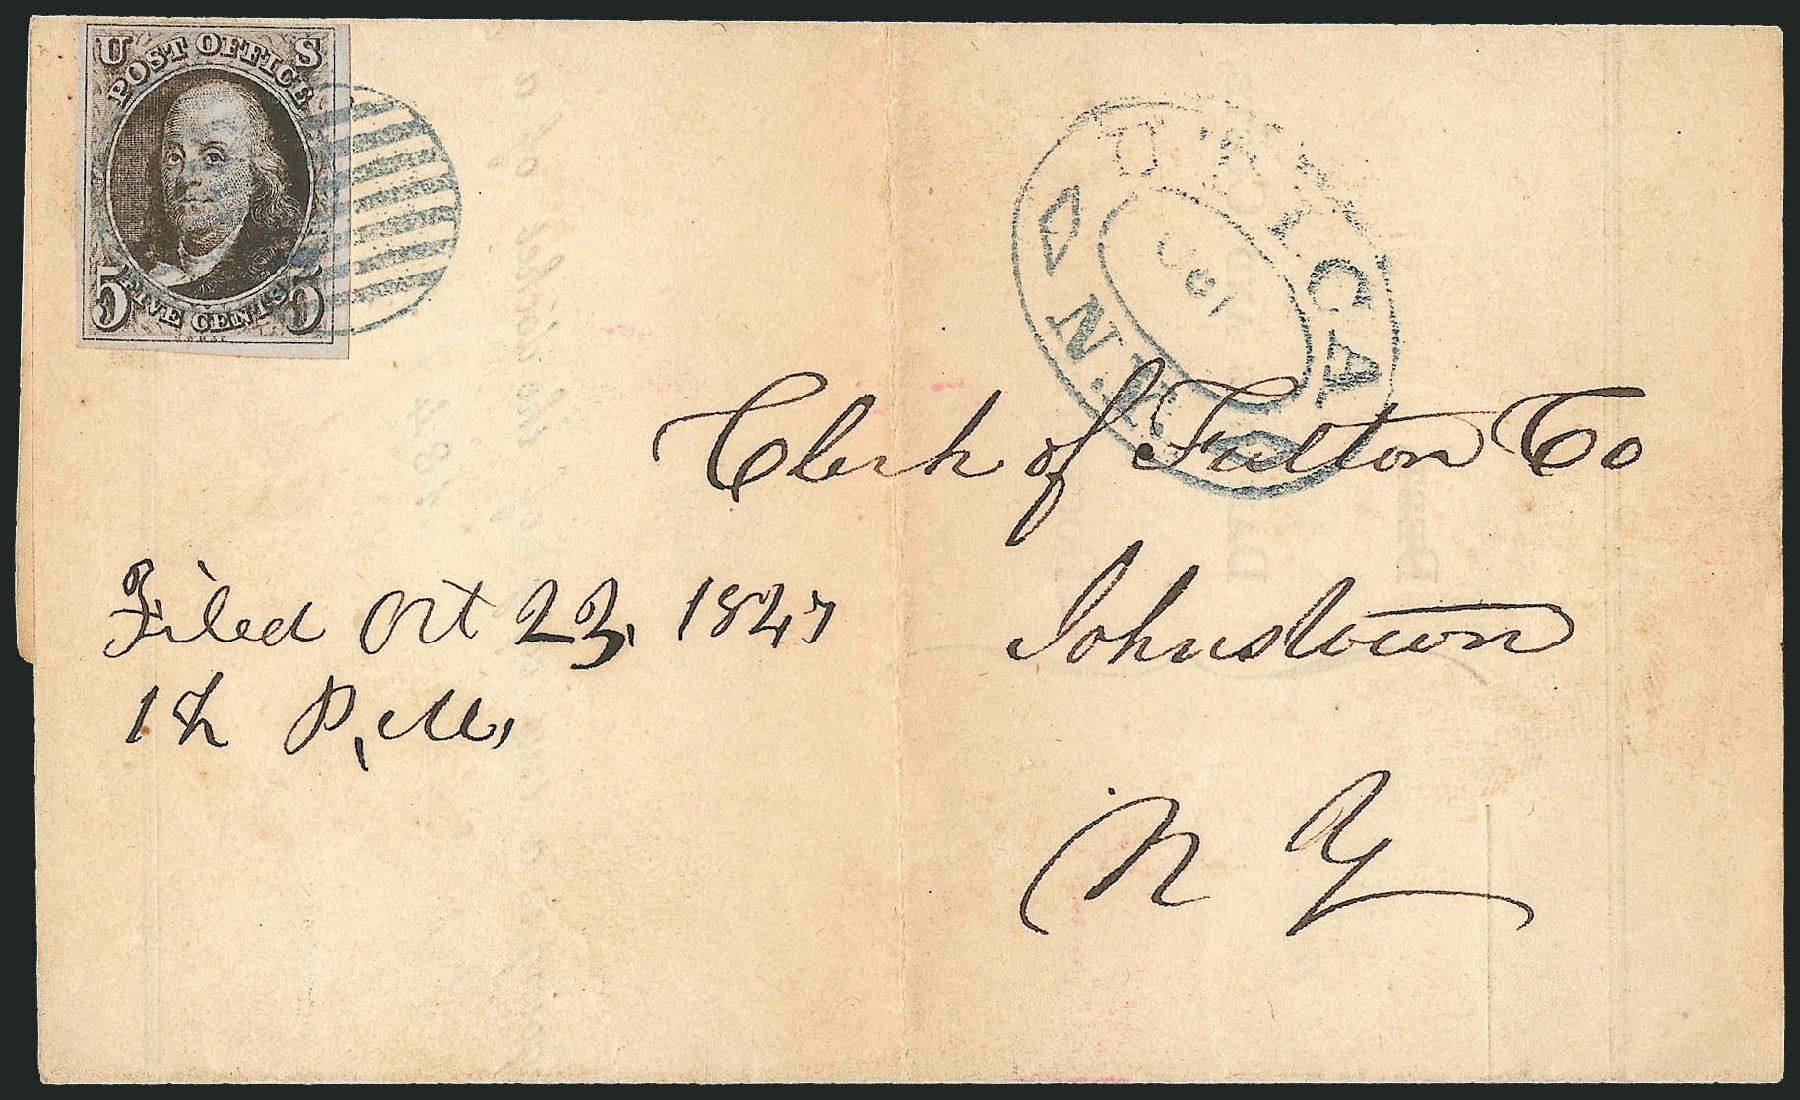 U S
POST OFFICE
5 FIVE CENTS 5
UTICA
N.Y.
OCT
Clerk of Fulton Co
Johnstown
N Y
Filed Oct 23, 1847
1 h P, M,